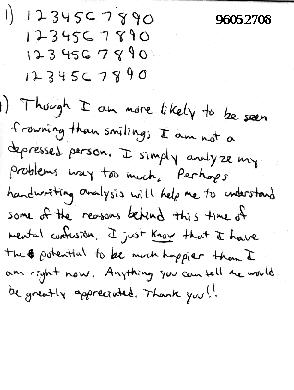 1) 1 2 3 4 5 6 7 8 9 0
96052708
1 2 3 4 5 6 7 8 9 0
1 2 3 4 5 6 7 8 9 0
1 2 3 4 5 6 7 8 9 0
) Though I am more likely to be seen
frowning than smiling, I am not a
depressed person. I simply analyze my
problems way too much. Perhaps
handwriting analysis will help me to understand
some of the reasons behind this time of
mental confusion. I just know that I have
the potential to be much happier than I
am right now. Anything you can tell me would
be greatly appreciated. Thank you!!